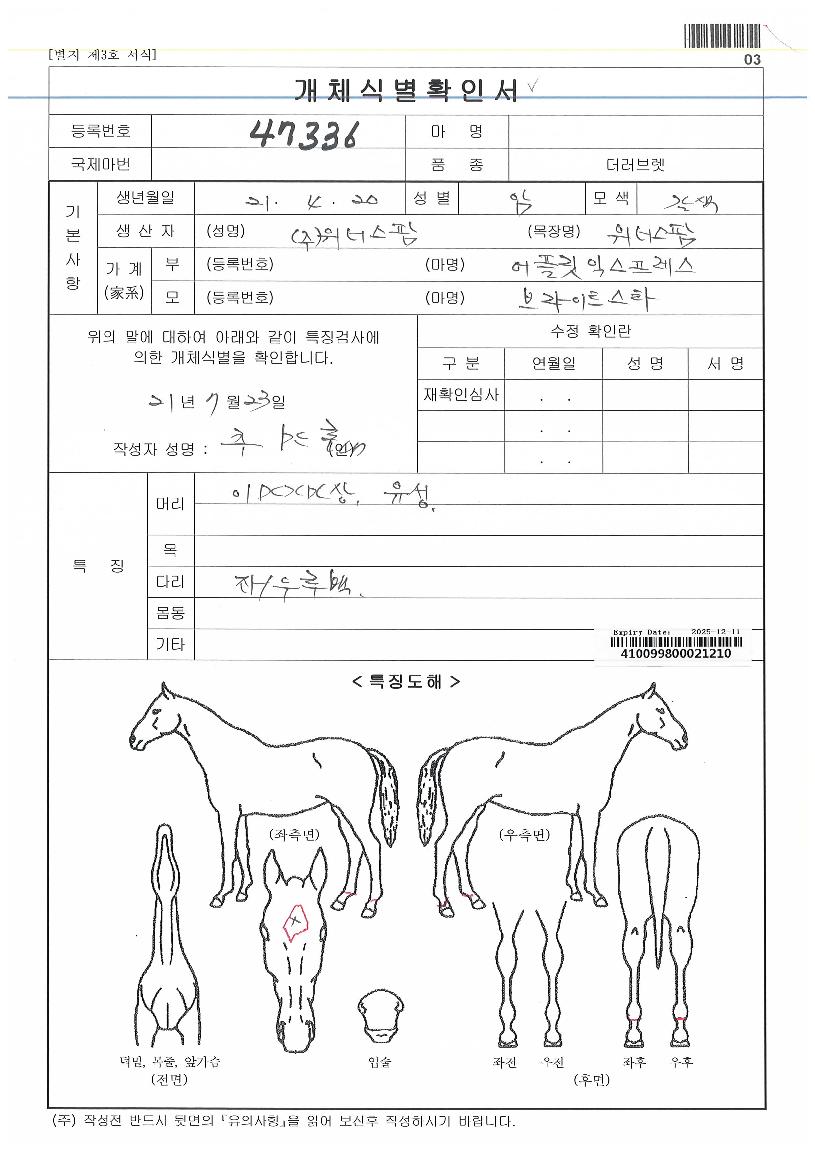 [별지 제3호 서식]
03
개체식별확인서
등록번호 47336 마 명
국제마번 품 종 더러브렛
기본사항
생년월일 21. 4. 20 성 별 암 모 색 갈색
생 산 자 (성명) (주)위너스팜 (목장명) 위너스팜
가 계 (家系)
부 (등록번호) (마명) 어플릿익스프레스
모 (등록번호) (마명) 브라이트스타
위의 말에 대하여 아래와 같이 특징검사에
의한 개체식별을 확인합니다.
21년 7월 23일
작성자 성명 :
수정 확인란
구 분 연월일 성 명 서 명
재확인심사 . .
. .
. .
특 징
머리 유성.
목
다리 좌/우후백.
몸통
기타
Expiry Date: 2025-12-11
410099800021210
< 특징도해 >
(좌측면) (우측면)
턱밑, 목줄, 앞가슴
(전면)
입술
좌전 우전 좌후 우후
(후면)
(주) 작성전 반드시 뒷면의 『유의사항』을 읽어 보신후 작성하시기 바랍니다.